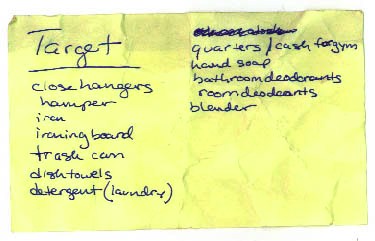 Target
closehangers
hamper
iron
ironing board
trash can
dishtowels
detergent (laundry)
quarters / cash for gym
hand soap
bathroom deodorants
room deodorants
blender